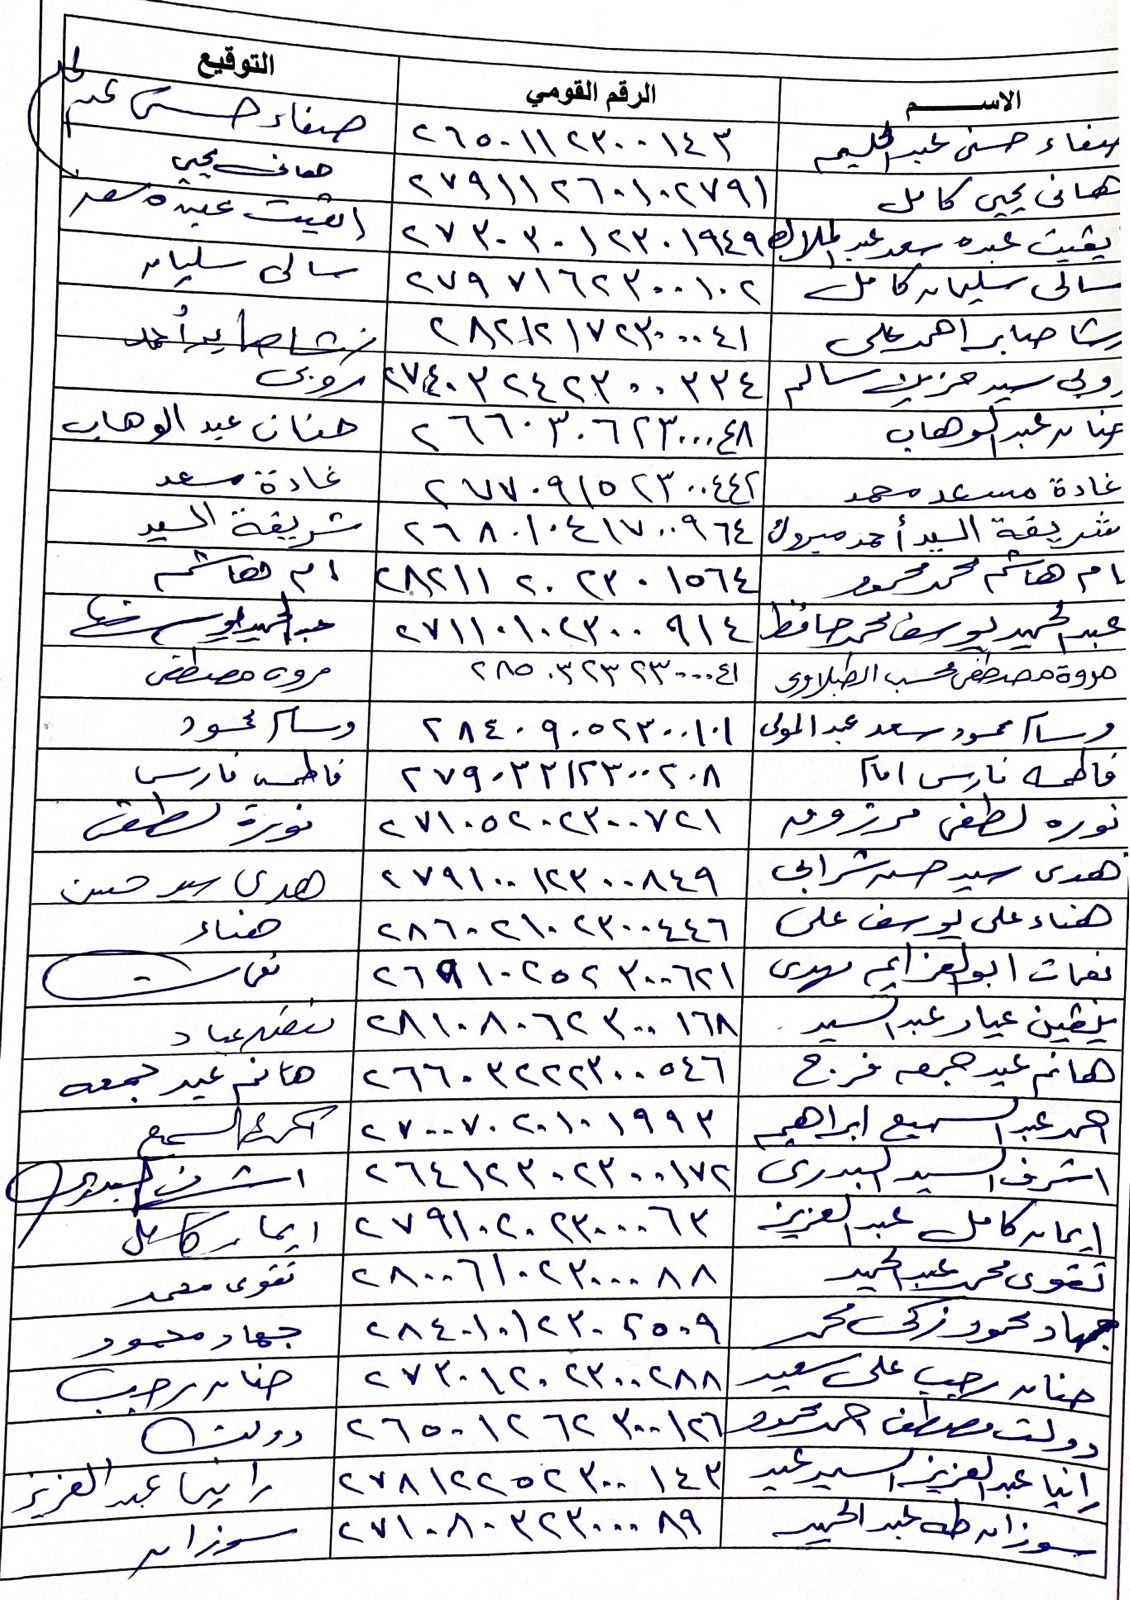 الاســـم الرقم القومي التوقيع
صفاء حسنى عبد الحليم ٢٦٥٠١١٢٣٠٠١٤٣ صفاء حسنى عبد الحليم
هانى يحيى كامل ٢٧٩١١٢٦٠١٠٢٧٩١ هانى يحيى
عبده سعد عبد الملاك ٢٧٣٠٣٠١٢٣٠١٩٤٩ عبده سعد
سالى سليمان كامل ٢٧٩٧١٦٢٣٠٠١٠٢ سالى سليمان
رشا صابر احمد على ٢٨٢١٢١٧٢٣٠٠٠٤١ رشا صابر أحمد
روبى سيد حزين سالم ٢٧٤٠٣٢٤٢٣٠٠٣٣٤ روبى
حنان عبد الوهاب ٢٦٦٠٣٠٦٢٣٠٠٠٤٨ حنان عبد الوهاب
غادة مسعد محمد ٢٧٧٠٩١٥٢٣٠٠٤٤٢ غادة مسعد
شريفة السيد أحمد مبروك ٢٦٨٠١٠٤١٧٠٠٩٦٤ شريفة السيد
ام هاشم محمد محمود ٢٨٢١١٢٠٢٣٠١٥٦٤ ام هاشم
عبد الحميد يوسف محمد حافظ ٢٧١١٠١٠٢٣٠٠٩١٤ عبد الحميد يوسف
مروة مصطفى محسب الطبلاوى ٢٨٥٠٣٢٣٢٣٠٠٠٤١ مروه مصطفى
وسام محمود سعد عبد المولى ٢٨٤٠٩٠٥٢٣٠٠١٠١ وسام محمود
فاطمه فارس امام ٢٧٩٠٣٢١٢٣٠٠٢٠٨ فاطمه فارس
نوره لطفى مرزوق ٢٧١٠٥٢٠٢٣٠٠٧٢١ نورة لطفى
هدى سيد حسن شرابى ٢٧٩١٠٠١٢٣٠٠٨٤٩ هدى سيد حسن
هناء على يوسف على ٢٨٦٠٢١٠٢٣٠٠٤٤٦ هناء
نعمات ابو العزايم مهدى ٢٦٩١٠٢٥٢٣٠٠٦٢١ نعمات
عياد عبد السيد ٢٨١٠٨٠٦٢٣٠٠١٦٨ عياد
هانم عيد جمعه فرج ٢٦٦٠٣٢٢٢٣٠٠٥٤٦ هانم عيد جمعه
احمد عبد السميع ابراهيم ٢٧٠٠٧٠٢٠١٠١٩٩٣ السميع
اشرف السيد البدرى ٢٦٤١٢٣٠٢٣٠٠١٧٢ اشرف البدرى
ايمان كامل عبد العزيز ٢٧٩١٠٢٠٢٣٠٠٠٦٣ ايمان كامل
تقوى محمد عبد الحميد ٢٨٠٠٦١٠٢٣٠٠٠٨٨ تقوى محمد
جهاد محمود زكى محمد ٢٨٤٠١٠١٢٣٠٢٥٠٩ جهاد محمود
حنان رجب على سعيد ٢٧٣٠١٢٠٢٣٠٠٢٨٨ حنان رجب
دولت مصطفى احمد محمود ٢٦٥٠١٢٦٢٣٠٠١٢٦ دولت
رانيا عبد العزيز السيد عيد ٢٧٨١٢٢٥٢٣٠٠١٤٣ رانيا عبد العزيز
سوزان طه عبد الحميد ٢٧١٠٨٠٣٢٣٠٠٠٨٩ سوزان